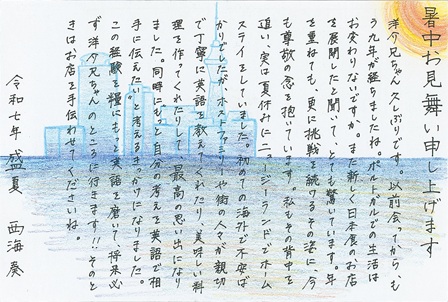 暑中お見舞い申し上げます
洋介兄ちゃん久しぶりです。以前会ってから、も
う九年が経ちましたね。ポルトガルでの生活は
お変わりないですか。また新しく日本食のお店
を展開したと聞いて、とても驚いています。年
を重ねても、更に挑戦を続けるその姿に、今
も尊敬の念を抱いています。私もその背中を
追い、実は夏休みにニュージーランドでホーム
ステイをしていました。初めての海外で不安ば
かりでしたが、ホストファミリーや街の人々が親切
で丁寧に英語を教えてくれたり、美味しい料
理を作ってくれたりして、最高の思い出になり
ました。同時にもっと自分の考えを英語で相
手に伝えたい!と考えるきっかけになりました。
この経験を糧にもっと英語を磨いて、将来必
ず洋介兄ちゃんのところに行きます!!そのと
きはお店を手伝わせてくださいね。
令和七年 盛夏 西海 葵